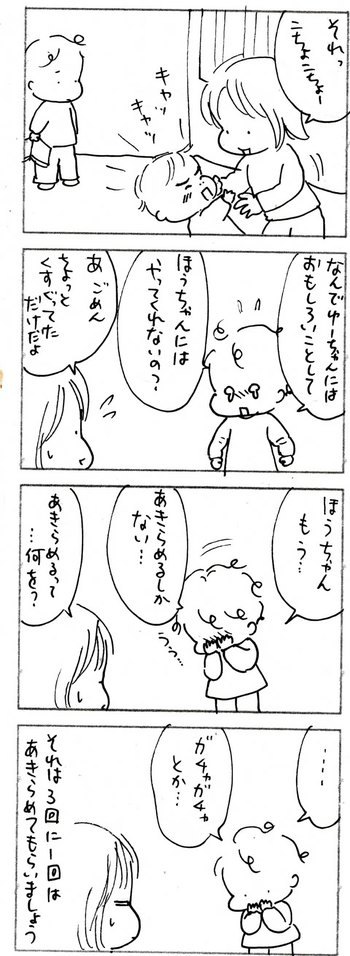 それっ
こちょこちょー
キャッ
キャッ
なんでゆーちゃんには
おもしろいことして
ほうちゃんには
やってくれないの？
あ ごめん
ちょっと
くすぐってた
だけだよ
ほうちゃん
もう…
あきらめるしか
ない…
うぅ…
あきらめるって
…何を？
……
ガチャガチャ
とか…
それは3回に一回は
あきらめてもらいましょう